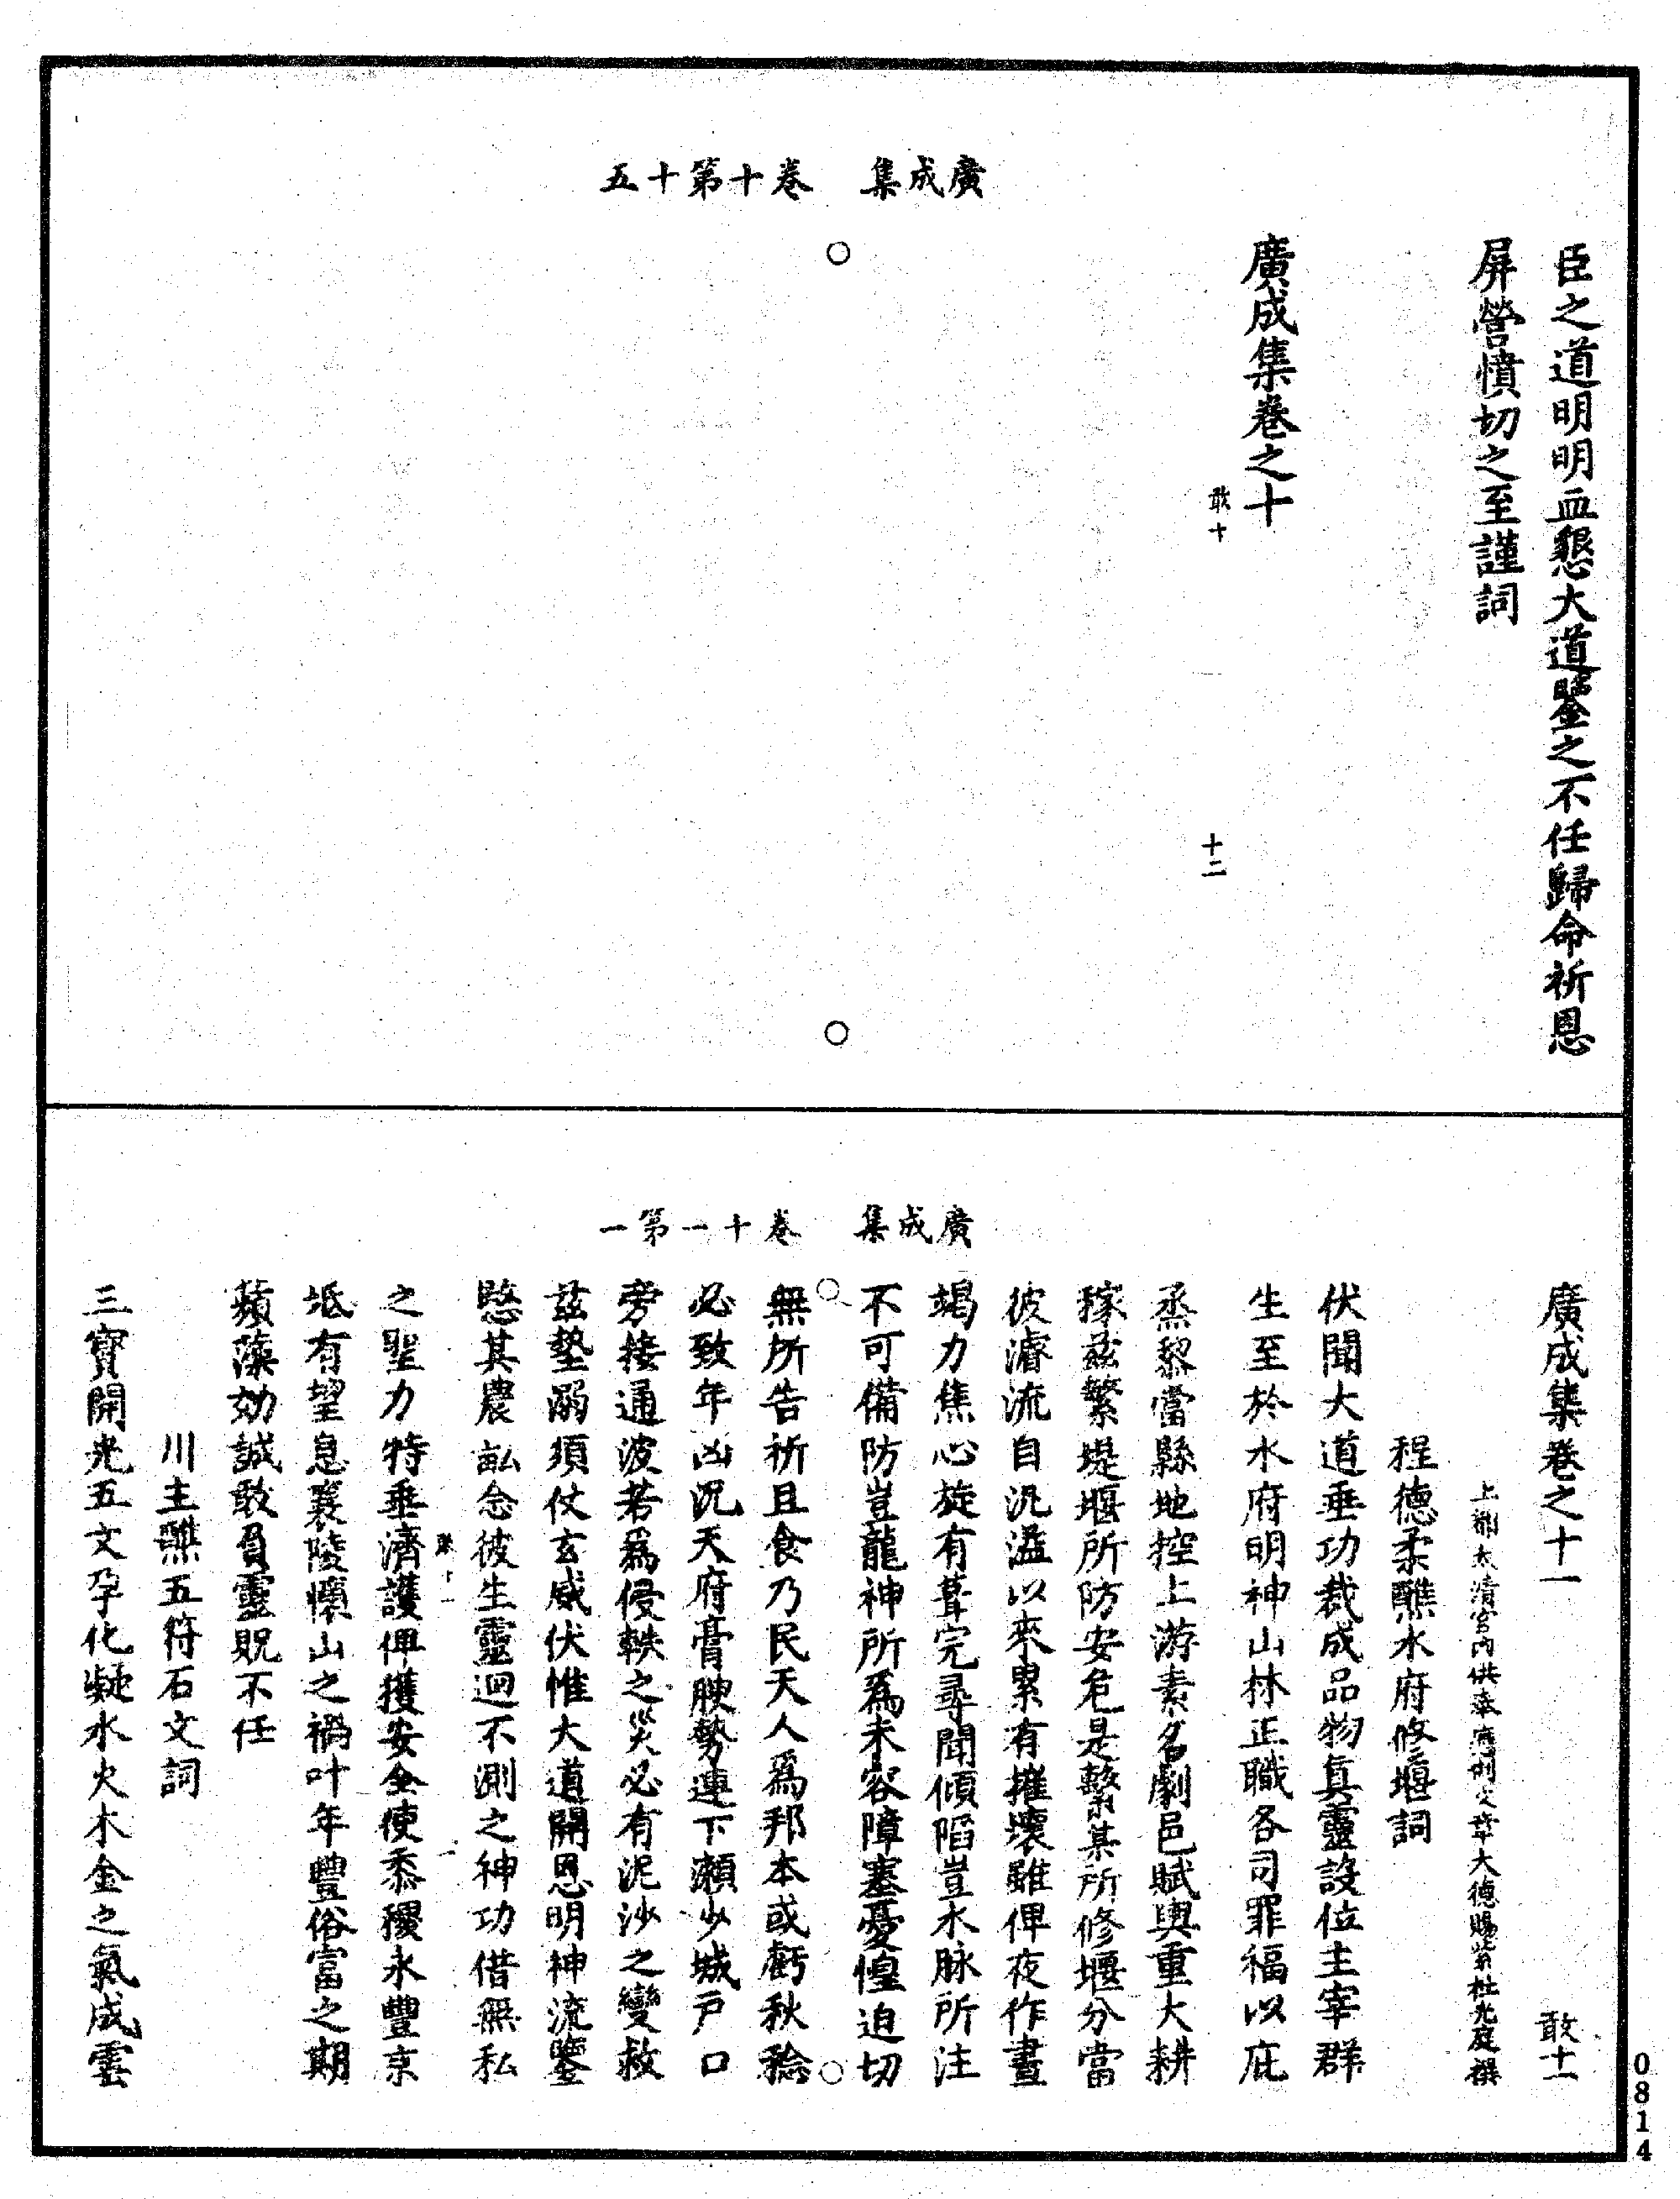 廣成集　卷十第十五
臣之道明明血懇大道鑒之不任歸命祈恩
屏營憤切之至謹詞
廣成集卷之十
敢十
十二
廣成集　卷十一第一
廣成集卷之十一
敢十一
上都太清宮內供奉應制文章大德賜紫杜光庭撰
程德柔醮水府修堰詞
伏聞大道垂功裁成品物真靈設位主宰群
生至於水府明神山林正職各司罪福以庇
烝黎當縣地控上游素名劇邑賦輿重大耕
稼茲繁堤堰所防安危是繫某所修堰分當
彼濬流自汎溢以來累有摧壞雖俾夜作晝
竭力焦心旋有葺完尋聞傾陷豈水脉所注
不可備防豈龍神所為未容障塞憂惶迫切
無所告祈且食乃民天人為邦本或虧秋稔
必致年凶況天府膏腴勢連下瀨少城戶口
旁接通波若為侵軼之災必有泥沙之變救
茲墊溺須仗玄威伏惟大道開恩明神流鑒
愍其農畝念彼生靈迴不測之神功借無私
敢十一
一
之聖力特垂濟護俾獲安全使黍稷永豐京
坻有望息襄陵懷山之禍叶年豐俗富之期
蘋藻効誠敢負靈貺不任
川主醮五符石文詞
三寶開光五文孕化凝水火木金之氣成雲
0814